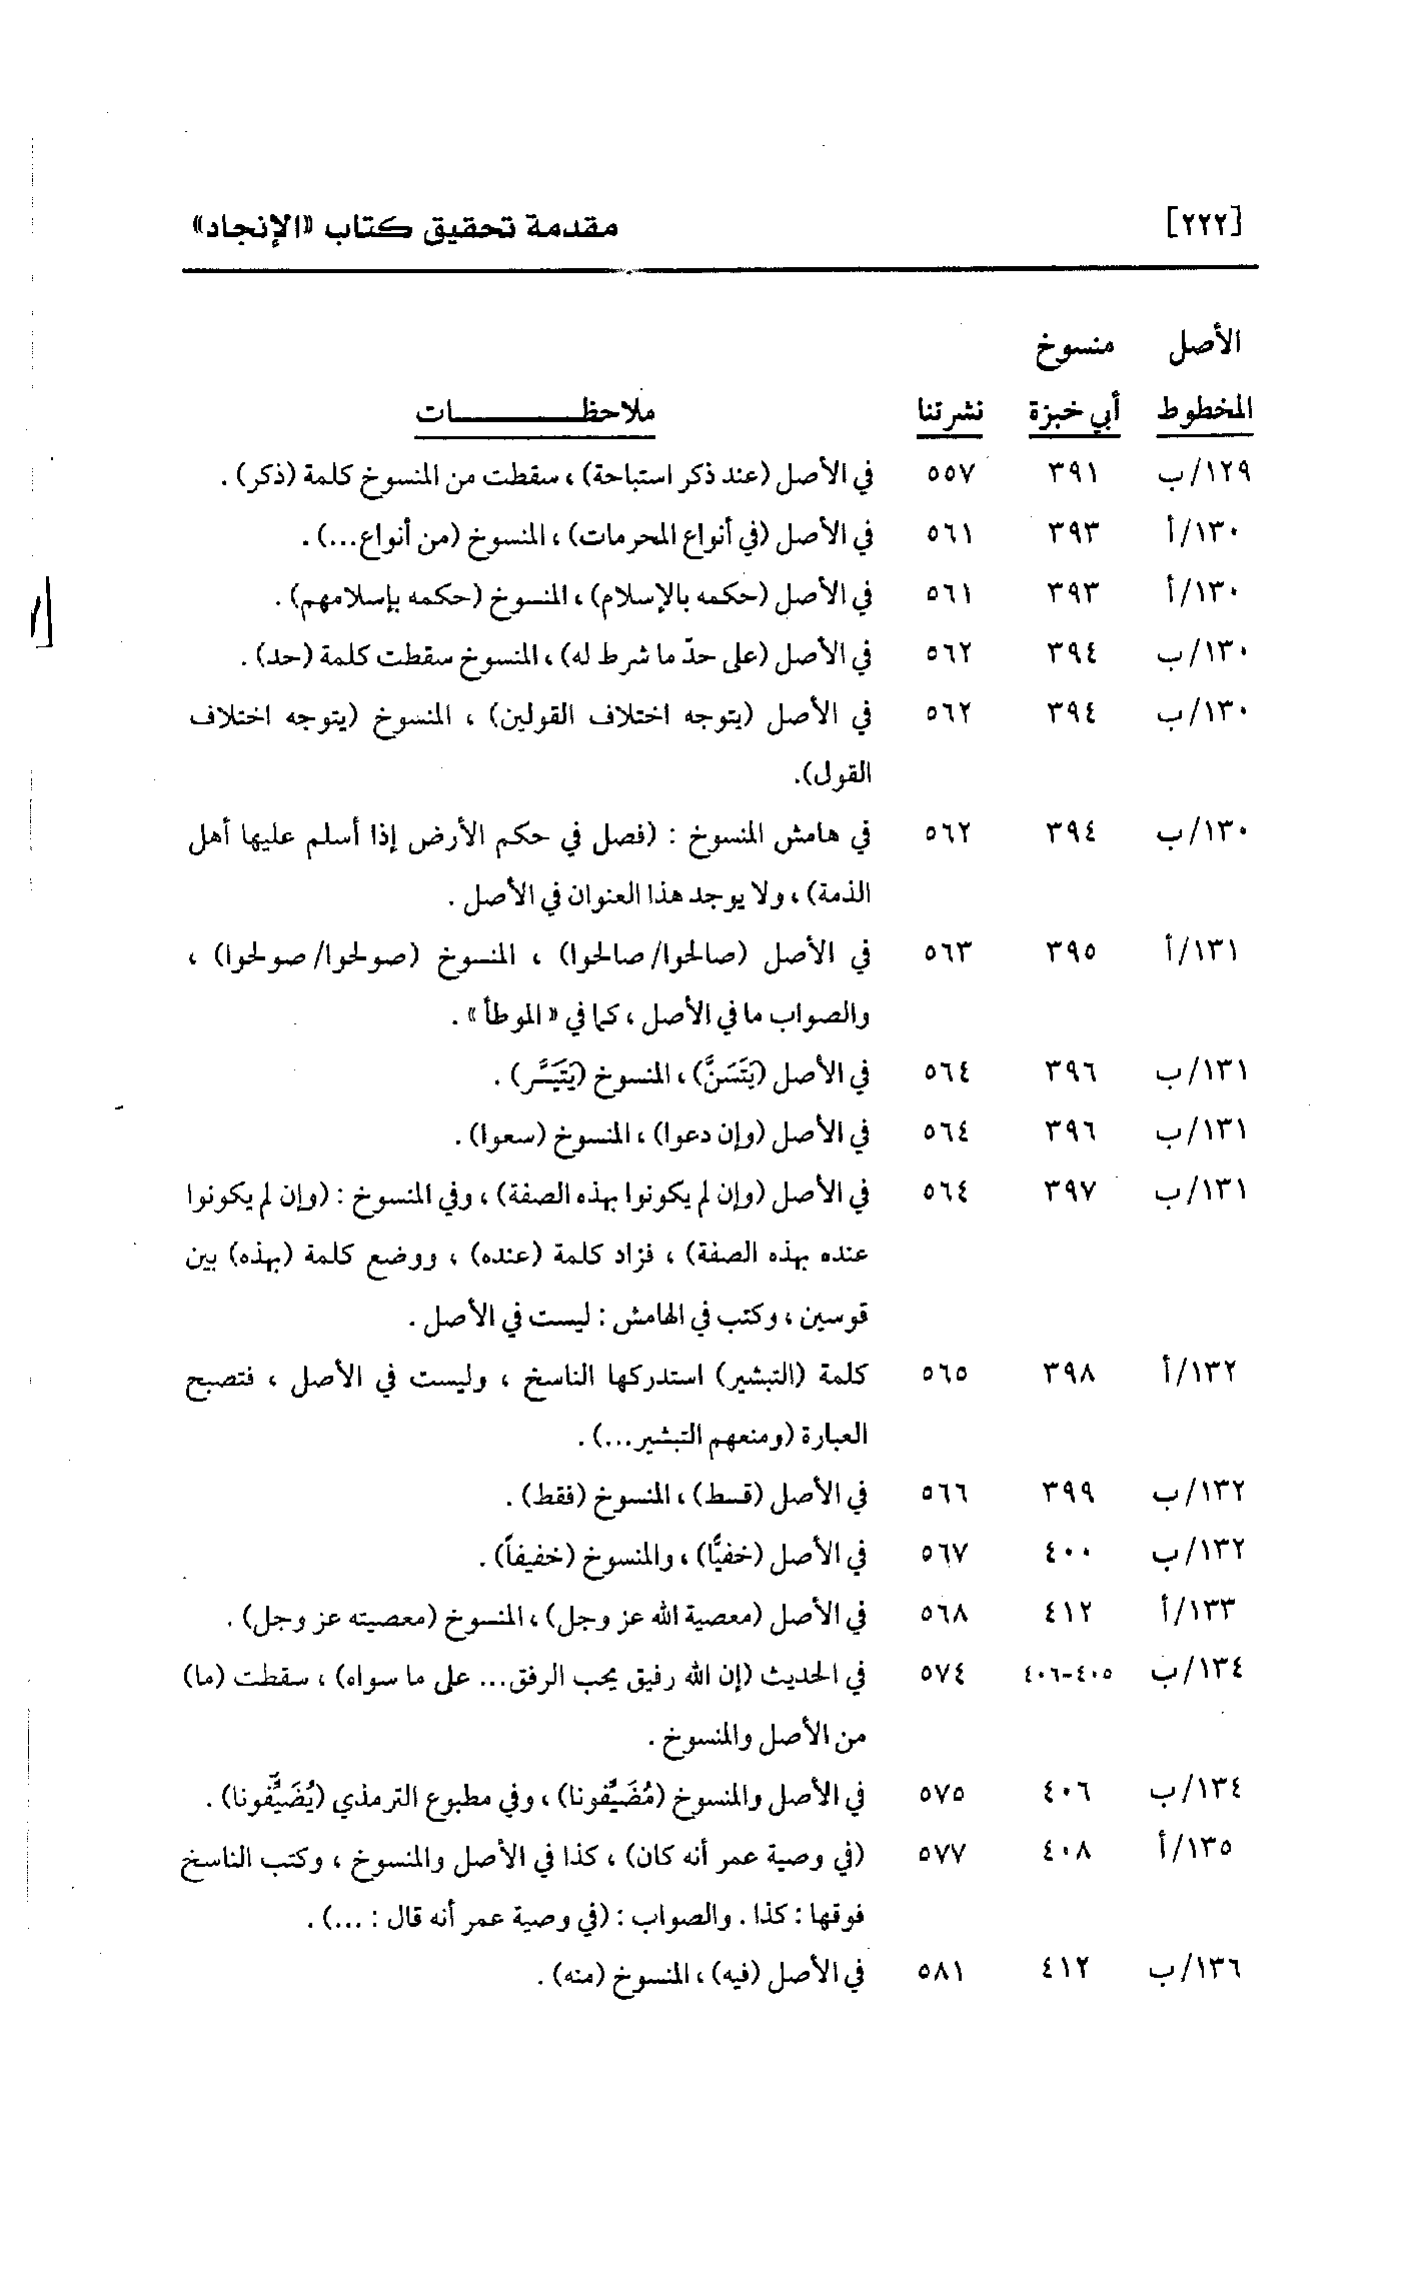 [٢٢٢] مقدمة تحقيق كتاب «الإنجاد»
الأصل منسوخ
المخطوط أبي خبزة نشرتنا ملاحظـــــــــات
١٢٩/ب ٣٩١ ٥٥٧ في الأصل (عند ذكر استباحة)، سقطت من المنسوخ كلمة (ذكر).
١٣٠/أ ٣٩٣ ٥٦١ في الأصل (في أنواع المحرمات)، المنسوخ (من أنواع...).
١٣٠/أ ٣٩٣ ٥٦١ في الأصل (حكمه بالإسلام)، المنسوخ (حكمه بإسلامهم).
١٣٠/ب ٣٩٤ ٥٦٢ في الأصل (على حدّ ما شرط له)، المنسوخ سقطت كلمة (حد).
١٣٠/ب ٣٩٤ ٥٦٢ في الأصل (يتوجه اختلاف القولين)، المنسوخ (يتوجه اختلاف
القول).
١٣٠/ب ٣٩٤ ٥٦٢ في هامش المنسوخ: (فصل في حكم الأرض إذا أسلم عليها أهل
الذمة)، ولا يوجد هذا العنوان في الأصل.
١٣١/أ ٣٩٥ ٥٦٣ في الأصل (صالحوا/ صالحوا)، المنسوخ (صولحوا/ صولحوا)،
والصواب ما في الأصل، كما في «الموطأ».
١٣١/ب ٣٩٦ ٥٦٤ في الأصل (يَتَسَنَّ)، المنسوخ (يَتَيَسَّر).
١٣١/ب ٣٩٦ ٥٦٤ في الأصل (وإن دعوا)، المنسوخ (سعوا).
١٣١/ب ٣٩٧ ٥٦٤ في الأصل (وإن لم يكونوا بهذه الصفة)، وفي المنسوخ: (وإن لم يكونوا
عنده بهذه الصفة)، فزاد كلمة (عنده)، ووضع كلمة (بهذه) بين
قوسين، وكتب في الهامش: ليست في الأصل.
١٣٢/أ ٣٩٨ ٥٦٥ كلمة (التبشير) استدركها الناسخ، وليست في الأصل، فتصبح
العبارة (ومنعهم التبشير...).
١٣٢/ب ٣٩٩ ٥٦٦ في الأصل (قسط)، المنسوخ (فقط).
١٣٢/ب ٤٠٠ ٥٦٧ في الأصل (خفيًّا)، والمنسوخ (خفيفاً).
١٣٣/أ ٤١٢ ٥٦٨ في الأصل (معصية الله عز وجل)، المنسوخ (معصيته عز وجل).
١٣٤/ب ٤٠٥-٤٠٦ ٥٧٤ في الحديث (إن الله رفيق يحب الرفق... على ما سواه)، سقطت (ما)
من الأصل والمنسوخ.
١٣٤/ب ٤٠٦ ٥٧٥ في الأصل والمنسوخ (مُضَيِّفونا)، وفي مطبوع الترمذي (يُضَيِّفونا).
١٣٥/أ ٤٠٨ ٥٧٧ (في وصية عمر أنه كان)، كذا في الأصل والمنسوخ، وكتب الناسخ
فوقها: كذا. والصواب: (في وصية عمر أنه قال: ...).
١٣٦/ب ٤١٢ ٥٨١ في الأصل (فيه)، المنسوخ (منه).